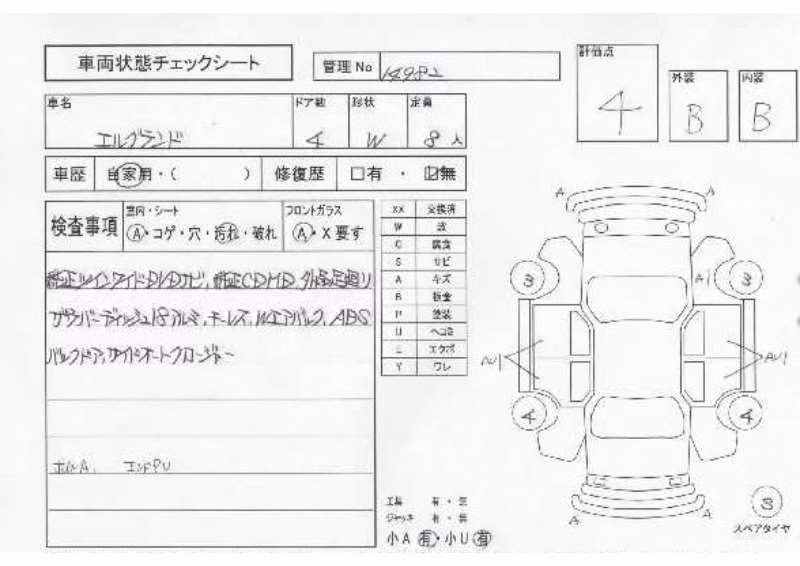 車両状態チェックシート
管理 No 14982
評価点 4
外装 B
内装 B
車名 エルグランド
ドア数 4
形状 W
定員 8人
車歴 自家用・( )
修復歴 □有 ・ ☑無
検査事項
室内・シート
A・コゲ・穴・汚れ・破れ
フロントガラス
A・X要す
純正ツインワイドDVDナビ, 純正CDMD, 外品足廻り
グラバーディッシュ18アルミ, キーレス, Wエアバック, ABS
バックドア, サイドオートクロージャー
ホイルA, エンドPU
XX 交換済
W 波
C 腐食
S サビ
A キズ
B 板金
P 塗装
U ヘコミ
E エクボ
Y ワレ
A A
3 A1 3
AU1 AU1
4 4
A A
3
スペアタイヤ
工具 有・無
ジャッキ 有・無
小A有・小U有